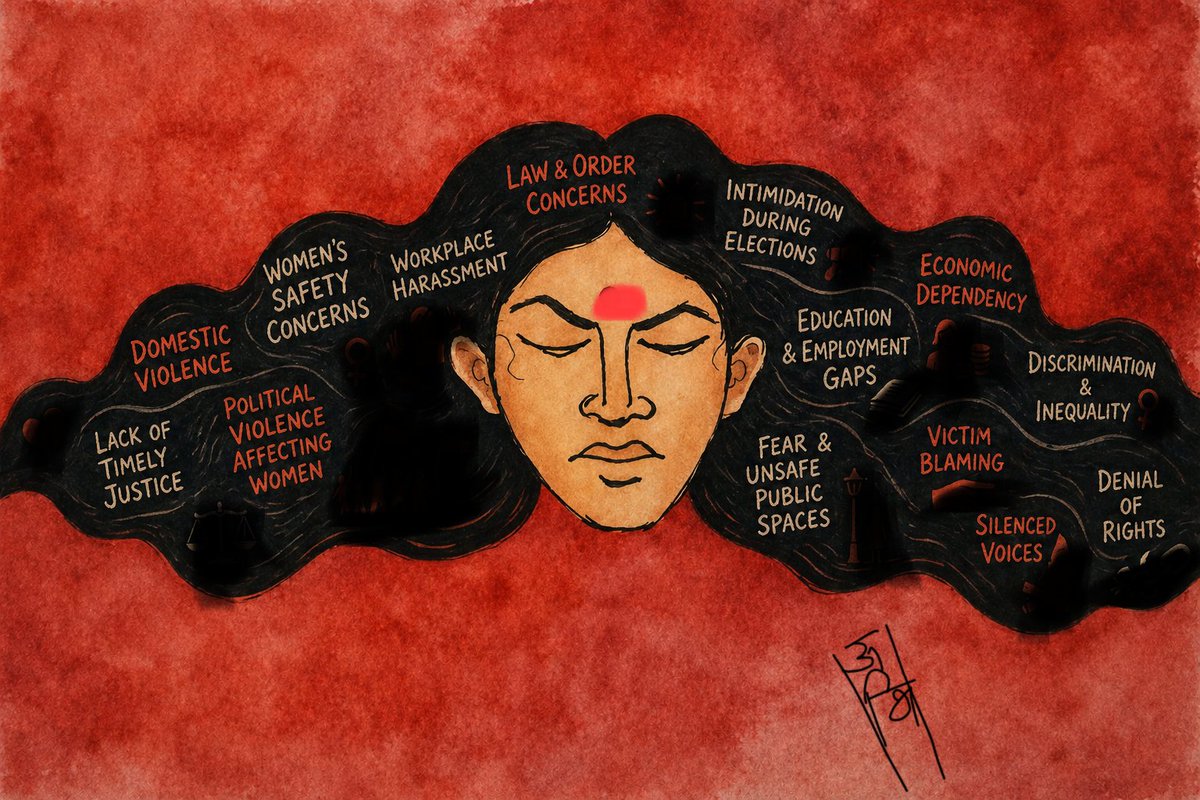 LAW & ORDER
CONCERNS
WOMEN'S
SAFETY
CONCERNS
WORKPLACE
HARASSMENT
DOMESTIC
VIOLENCE
LACK OF
TIMELY
JUSTICE
POLITICAL
VIOLENCE
AFFECTING
WOMEN
INTIMIDATION
DURING
ELECTIONS
ECONOMIC
DEPENDENCY
EDUCATION
& EMPLOYMENT
GAPS
DISCRIMINATION
&
INEQUALITY
FEAR &
UNSAFE
PUBLIC
SPACES
VICTIM
BLAMING
DENIAL
OF
RIGHTS
SILENCED
VOICES